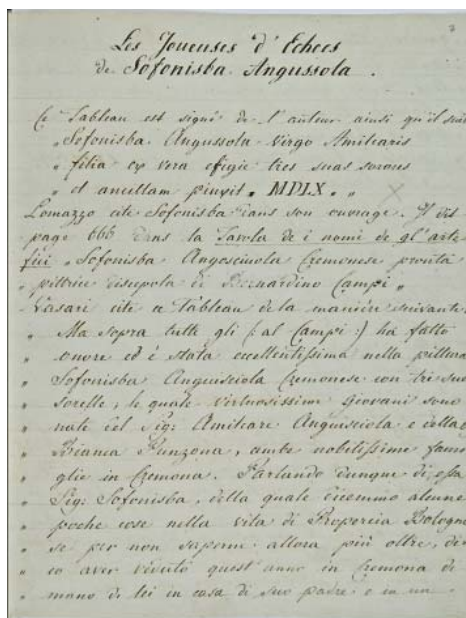 Les Joueuses d'Echecs
de Sofonisba Angussola.
Ce Tableau est signé de l'auteur ainsi qu'il suit
„ Sofonisba Angussola Virgo Amilcaris
„ filia ex vera efigie tres suas sorores
„ et ancillam pinxit. MDLX. „
Lomazzo cite Sofonisba dans son ouvrage. Il dit
page 666 dans la Tavola de i nomi de gl'arte
fici „ Sofonisba Angosciuola Cremonese pronta
„ pittrice discepola di Bernardino Campi „
Vasari cite ce Tableau de la manière suivante
„ Ma sopra tutti gli (al Campi:) ha fatto
„ onore ed è stata eccellentissima nella pittura
„ Sofonisba Anguisciola Cremonese con tre sue
„ sorelle, le quale virtuosissime Giovani sono
„ nate del Sig: Amilcare Anguisciola e della
„ Bianca Punzona, ambe nobilissime fami
„ glie in Cremona. Parlando dunque di essa
„ Sig: Sofonisba, della quale dicemmo alcune
„ poche cose nella vita di Properzia Bologne
„ se per non saperne allora più oltre, di
„ co aver veduto quest'anno in Cremona di
„ mano di lei in casa di suo padre e in un